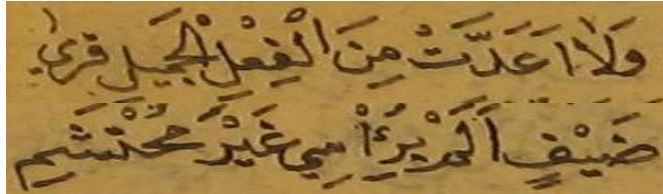 وَلَا اَعَدَّتْ مِنَ الْفِعْلِ الْجَمِيلِ قِرىٰ
ضَيْفٍ اَلَمَّ بِرَأْسِي غَيْرَ مُحْتَشِمِ